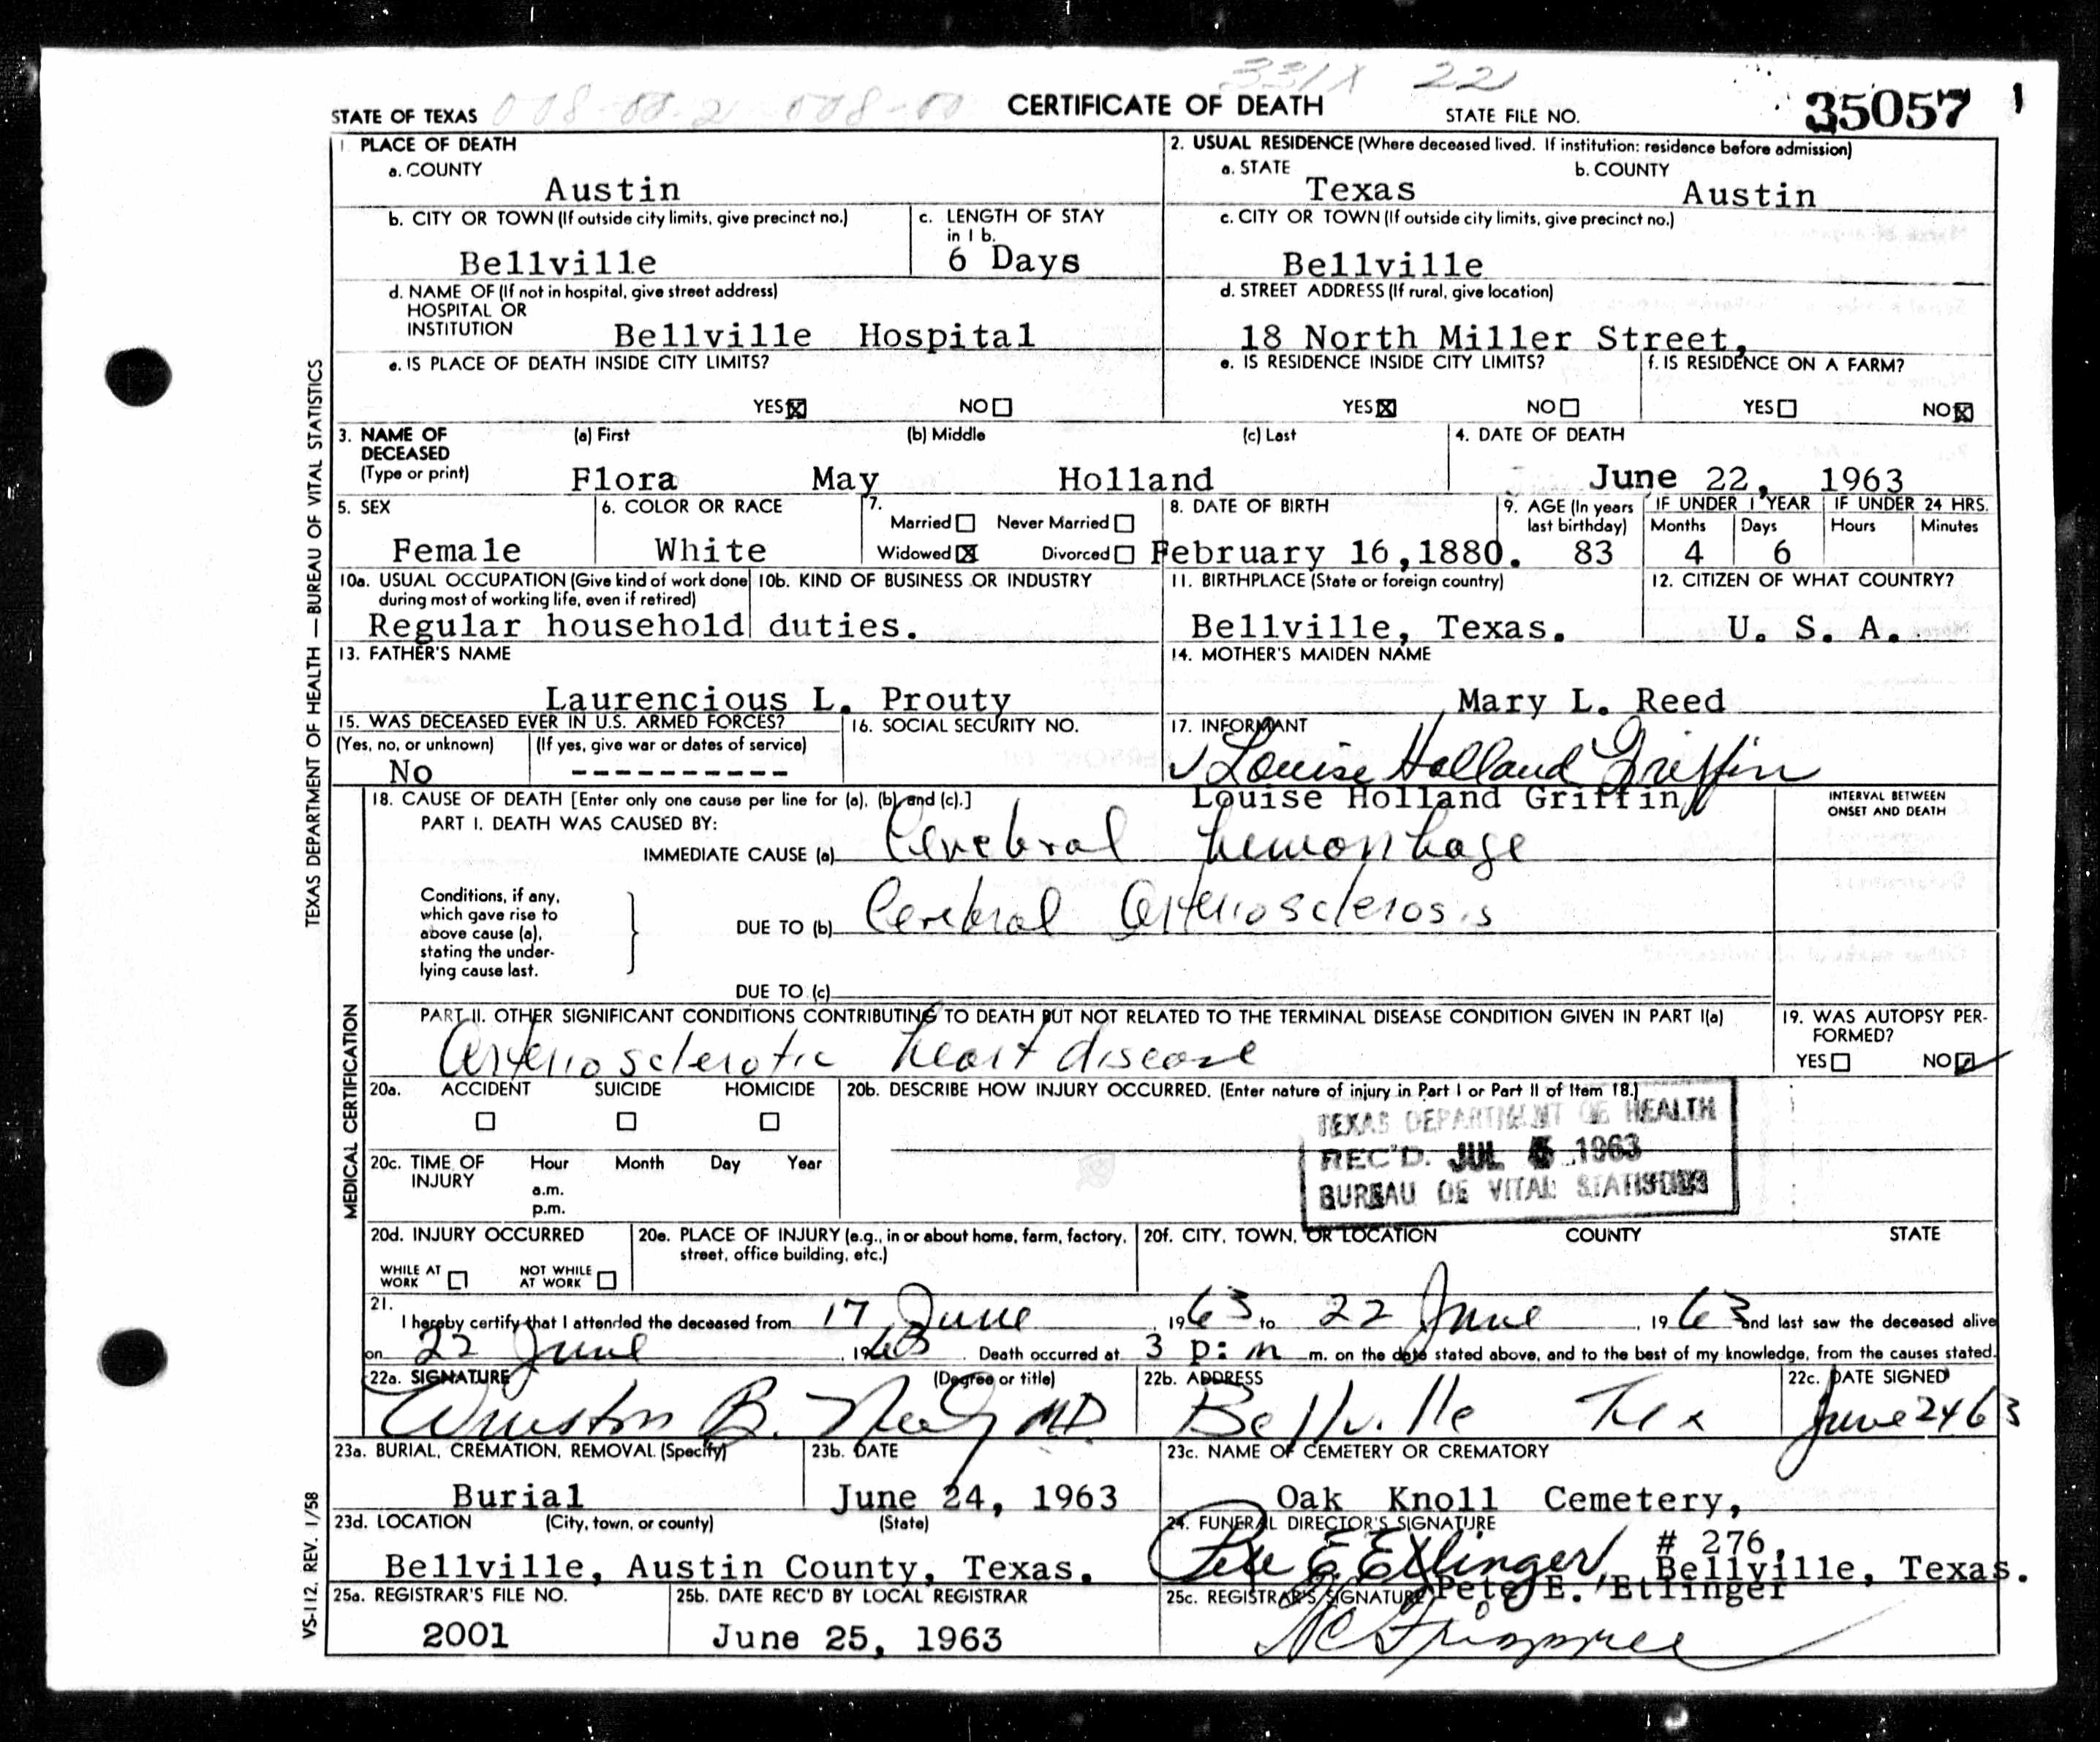 331X 22
STATE OF TEXAS 008-00-2 008-00 CERTIFICATE OF DEATH STATE FILE NO. 35057 1
1 PLACE OF DEATH
a. COUNTY
Austin
2. USUAL RESIDENCE (Where deceased lived. If institution: residence before admission)
a. STATE b. COUNTY
Texas Austin
b. CITY OR TOWN (If outside city limits, give precinct no.)
Bellville
c. LENGTH OF STAY
in 1 b.
6 Days
c. CITY OR TOWN (If outside city limits, give precinct no.)
Bellville
d. NAME OF (If not in hospital, give street address)
HOSPITAL OR
INSTITUTION Bellville Hospital
d. STREET ADDRESS (If rural, give location)
18 North Miller Street,
e. IS PLACE OF DEATH INSIDE CITY LIMITS?
YES☒ NO☐
e. IS RESIDENCE INSIDE CITY LIMITS?
YES☒ NO☐
f. IS RESIDENCE ON A FARM?
YES☐ NO☒
3. NAME OF (a) First (b) Middle (c) Last
DECEASED
(Type or print) Flora May Holland
4. DATE OF DEATH
June 22, 1963
5. SEX
Female
6. COLOR OR RACE
White
7.
Married☐ Never Married☐
Widowed☒ Divorced☐
8. DATE OF BIRTH
February 16,1880.
9. AGE (In years
last birthday)
83
IF UNDER 1 YEAR
Months Days
4 6
IF UNDER 24 HRS.
Hours Minutes
10a. USUAL OCCUPATION (Give kind of work done
during most of working life, even if retired)
10b. KIND OF BUSINESS OR INDUSTRY
Regular household duties.
11. BIRTHPLACE (State or foreign country)
Bellville, Texas.
12. CITIZEN OF WHAT COUNTRY?
U. S. A.
13. FATHER'S NAME
Laurencious L. Prouty
14. MOTHER'S MAIDEN NAME
Mary L. Reed
15. WAS DECEASED EVER IN U.S. ARMED FORCES?
(Yes, no, or unknown) (If yes, give war or dates of service)
No ----------
16. SOCIAL SECURITY NO.
17. INFORMANT
Louise Holland Griffin
Louise Holland Griffin
18. CAUSE OF DEATH [Enter only one cause per line for (a), (b) and (c).]
INTERVAL BETWEEN
ONSET AND DEATH
PART I. DEATH WAS CAUSED BY:
IMMEDIATE CAUSE (a) Cerebral hemorrhage
Conditions, if any,
which gave rise to
above cause (a),
stating the under-
lying cause last.
DUE TO (b) Cerebral Arteriosclerosis
DUE TO (c)
PART II. OTHER SIGNIFICANT CONDITIONS CONTRIBUTING TO DEATH BUT NOT RELATED TO THE TERMINAL DISEASE CONDITION GIVEN IN PART I(a)
Arteriosclerotic heart disease
19. WAS AUTOPSY PER-
FORMED?
YES☐ NO☑
20a. ACCIDENT SUICIDE HOMICIDE
☐ ☐ ☐
20b. DESCRIBE HOW INJURY OCCURRED. (Enter nature of injury in Part I or Part II of Item 18.)
TEXAS DEPARTMENT OF HEALTH
REC'D. JUL 1963
BUREAU OF VITAL STATISTICS
20c. TIME OF Hour Month Day Year
INJURY
a.m.
p.m.
20d. INJURY OCCURRED
WHILE AT
WORK ☐
NOT WHILE
AT WORK ☐
20e. PLACE OF INJURY (e.g., in or about home, farm, factory,
street, office building, etc.)
20f. CITY, TOWN, OR LOCATION COUNTY STATE
21.
I hereby certify that I attended the deceased from 17 June, 1963 to 22 June, 1963 and last saw the deceased alive
on 22 June, 1963. Death occurred at 3 p: m m. on the date stated above, and to the best of my knowledge, from the causes stated.
22a. SIGNATURE (Degree or title)
Winston B. Neely MD
22b. ADDRESS
Bellville Tex
22c. DATE SIGNED
June 24 63
23a. BURIAL, CREMATION, REMOVAL (Specify)
Burial
23b. DATE
June 24, 1963
23c. NAME OF CEMETERY OR CREMATORY
Oak Knoll Cemetery,
23d. LOCATION (City, town, or county) (State)
Bellville, Austin County, Texas.
24. FUNERAL DIRECTOR'S SIGNATURE
Pete E Etlinger, # 276,
Bellville, Texas.
Pete E. Etlinger
25a. REGISTRAR'S FILE NO.
2001
25b. DATE REC'D BY LOCAL REGISTRAR
June 25, 1963
25c. REGISTRAR'S SIGNATURE
TEXAS DEPARTMENT OF HEALTH — BUREAU OF VITAL STATISTICS
MEDICAL CERTIFICATION
VS-112. REV. 1/58